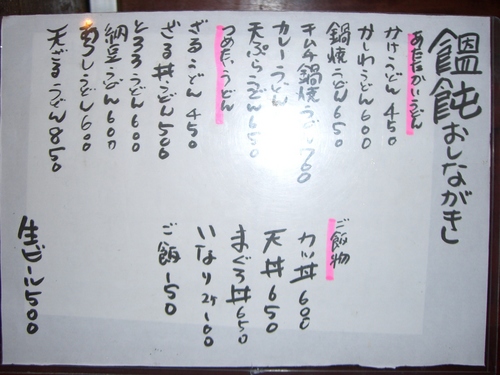 饂飩おしながき
あたたかいうどん
かけうどん 450
かしわうどん 600
鍋焼うどん 650
キムチ鍋焼うどん 700
カレーうどん
天ぷらうどん 650
つめたいうどん
ざるうどん 450
ざる丼うどん 500
とろろうどん 600
納豆うどん 600
おろしうどん 600
天ざるうどん 850
ご飯物
カツ丼 600
天丼 650
まぐろ丼 650
いなり 2ケ 100
ご飯 150
生ビール 500